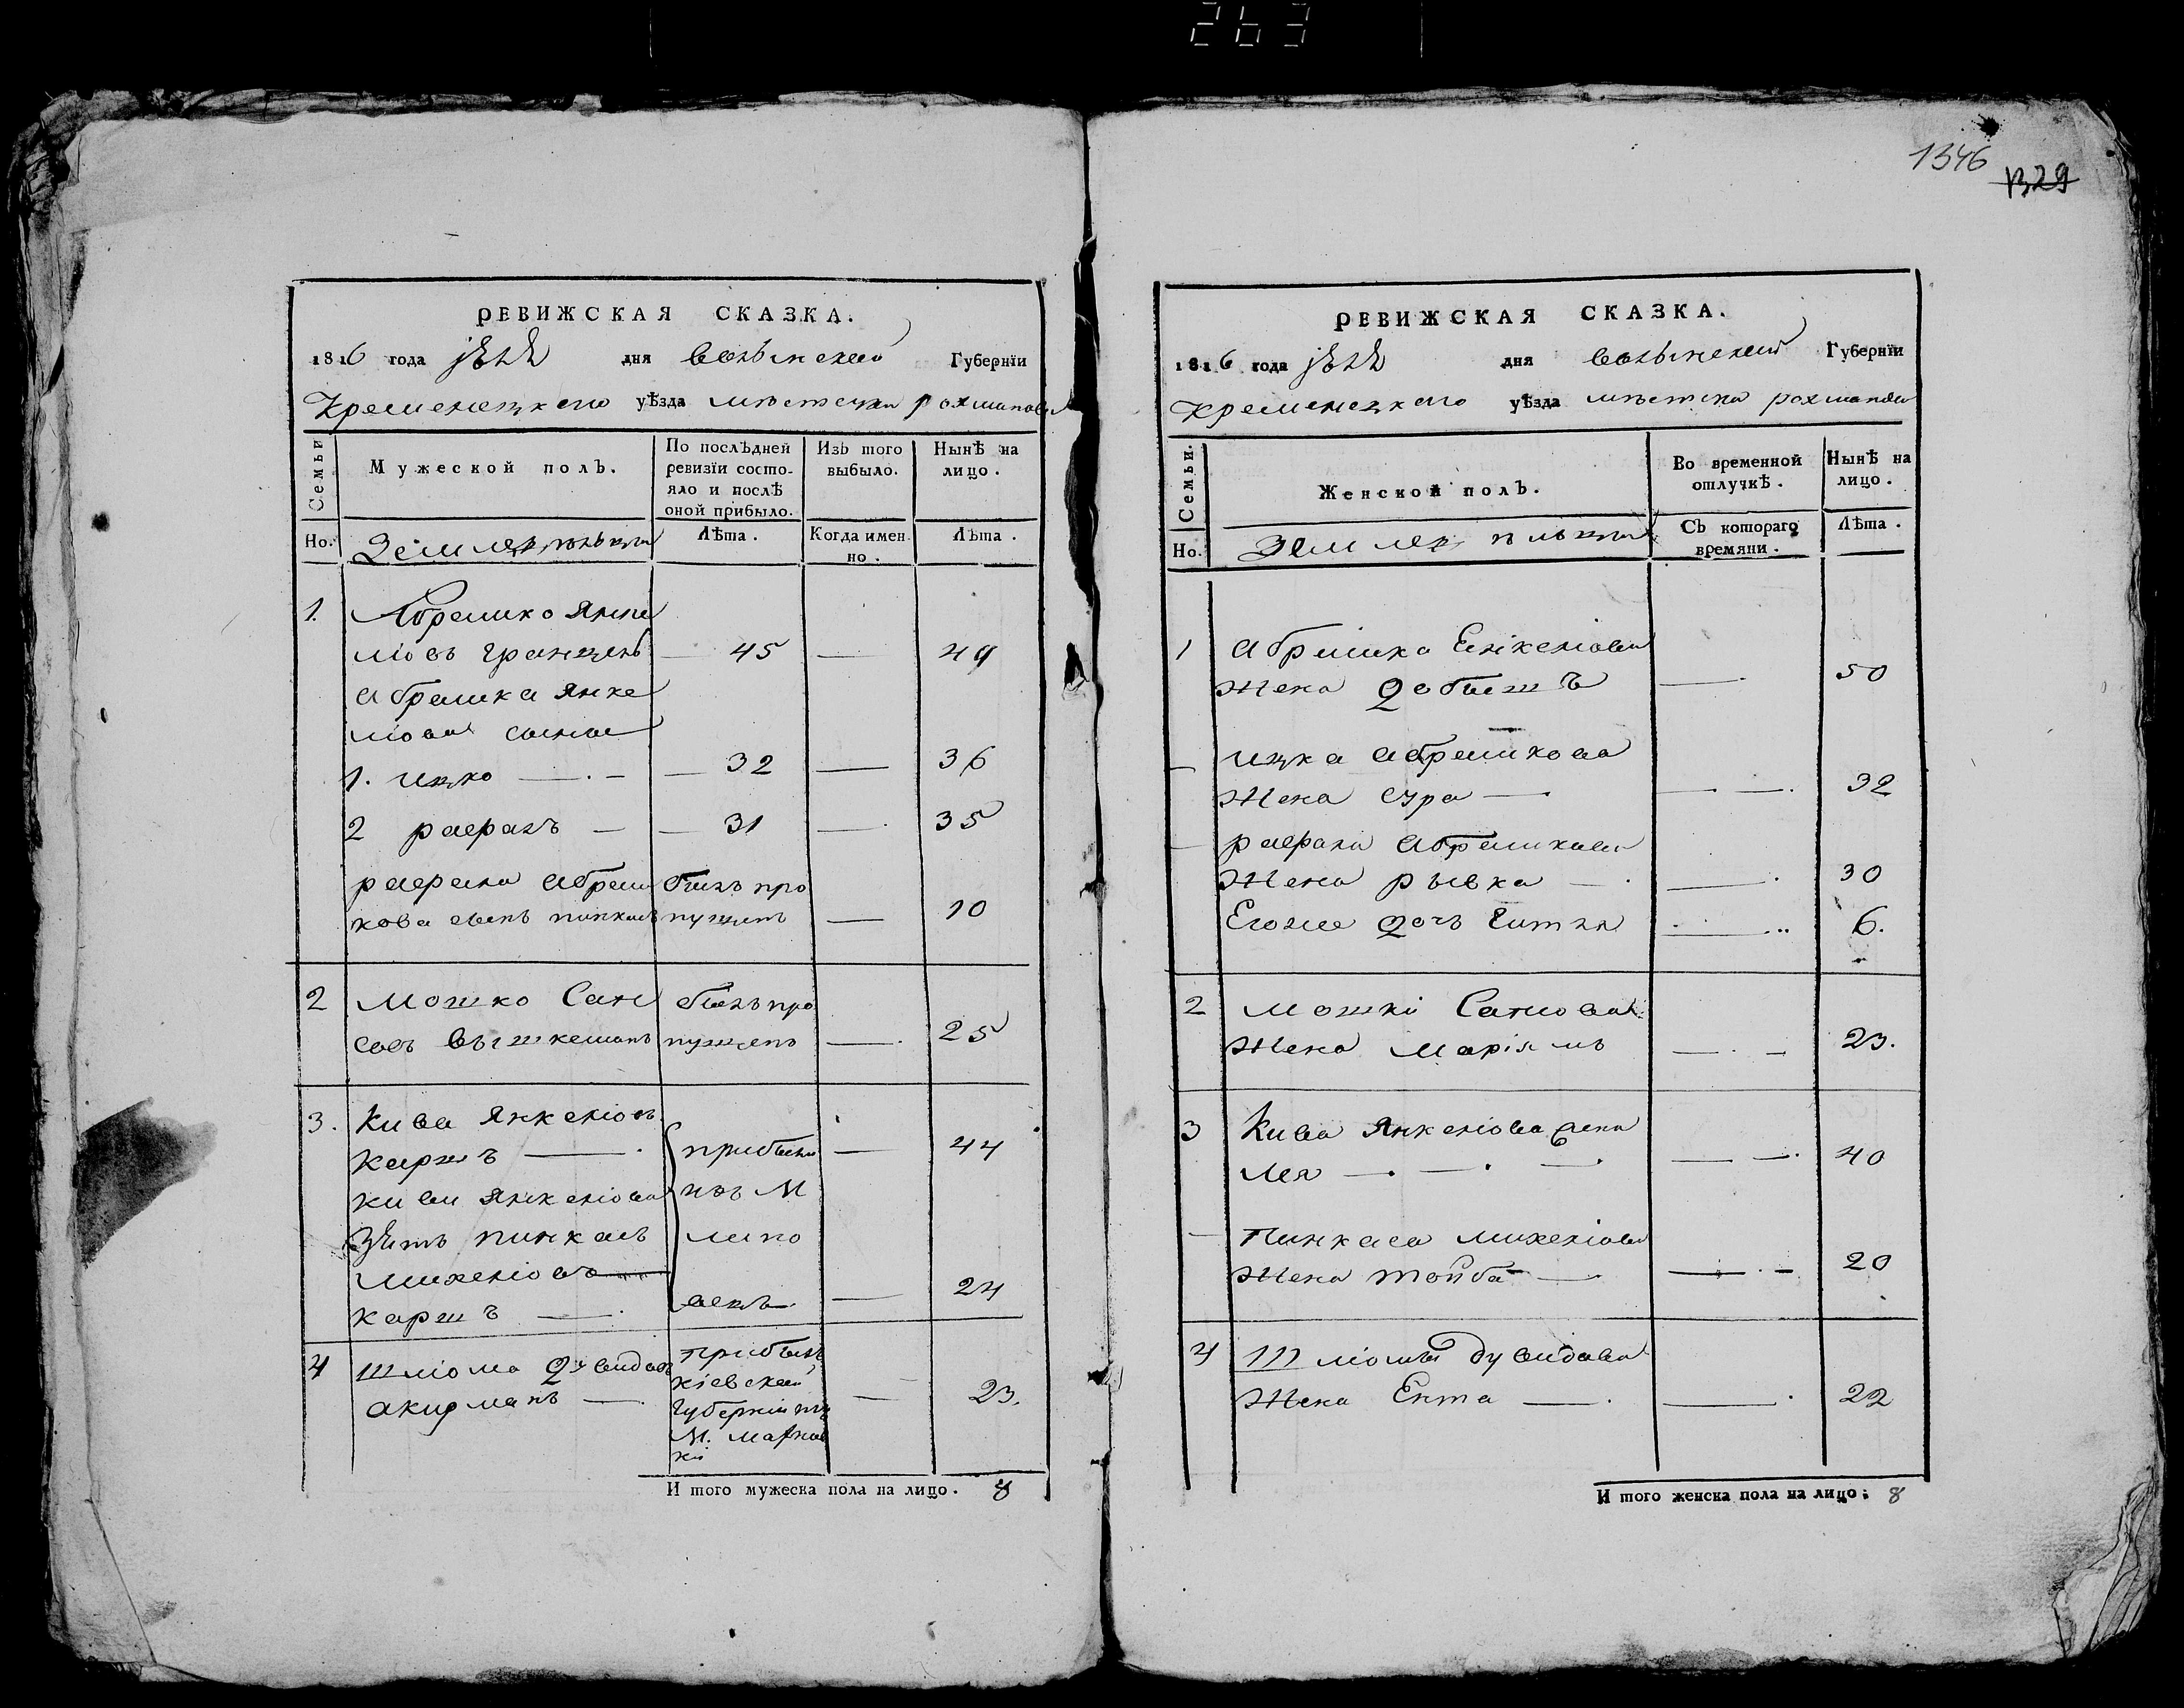 263
1346
1329
РЕВИЖСКАЯ СКАЗКА.
1816 года дня Волынской Губернїи
Кременецкого уѣзда местечка рохманова
Семьи
Мужеской полъ.
По послѣдней ревизїи состояло и послѣ оной прибыло.
Изъ того выбыло.
Нынѣ на лицо.
Но.
Лѣта.
Когда именно.
Лѣта.
1. Абрамко Янке
лiовъ 45 — 49
Абрамка Янке
лiова сыны
1. ицко — — 32 — 36
2 рафалъ — — 31 — 35
рафала Абрам былъ про
кова сынъ пинкасъ пущенъ — 10
2 Мошко Сан былъ про
пущенъ — 25
3. Кива Янкелiовъ
каршъ — прибыли — 44
киви Янкелiова изъ М
Зять пинкасъ липо
михелiовъ
каршъ — вецъ — 24
4 Шлiома Дувидовъ прибылъ
акирманъ — кiевской — 23.
Губернии изъ
М.
ки
И того мужеска пола на лицо. 8
РЕВИЖСКАЯ СКАЗКА.
1816 года дня волынской Губернїи
Кременецкого уѣзда рохманова
Семьи.
Женской полъ.
Во временной отлучкѣ.
Нынѣ на лицо.
Но.
Съ котораго времяни.
Лѣта.
1 Абрамка
жена — 50
— ицка Абрамкова
жена сура — — — 32
— рафала Абрамкова
жена рывка — — 30
Егоже дочь Гитля — 6.
2 Мошки
жена Марiямъ — — 23.
3 Кива Янкелiова жена
Лея — — — — — 40
— Пинкаса михелiова
жена тойба — — — 20
4 Шлiомы дувидова
жена Ента — — 22
И того женска пола на лицо: 8